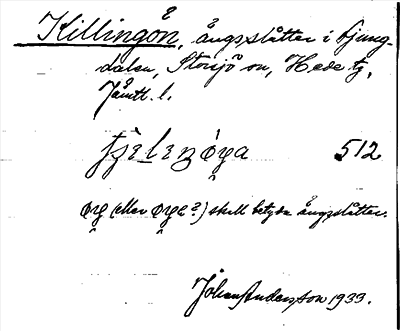 Killingån, ångsslåtter i Ljung-
dalen, Storsjö sn, Hede tg,
Jämtl. l.
512
øy (eller øya?) skall betyda ångsslåtter.
Johan Andersson 1933.